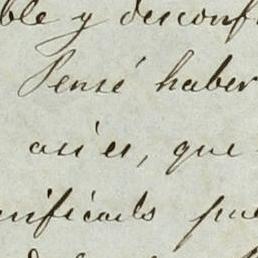 ble y desconf
Pensé haber
asi es, que
nificado pue